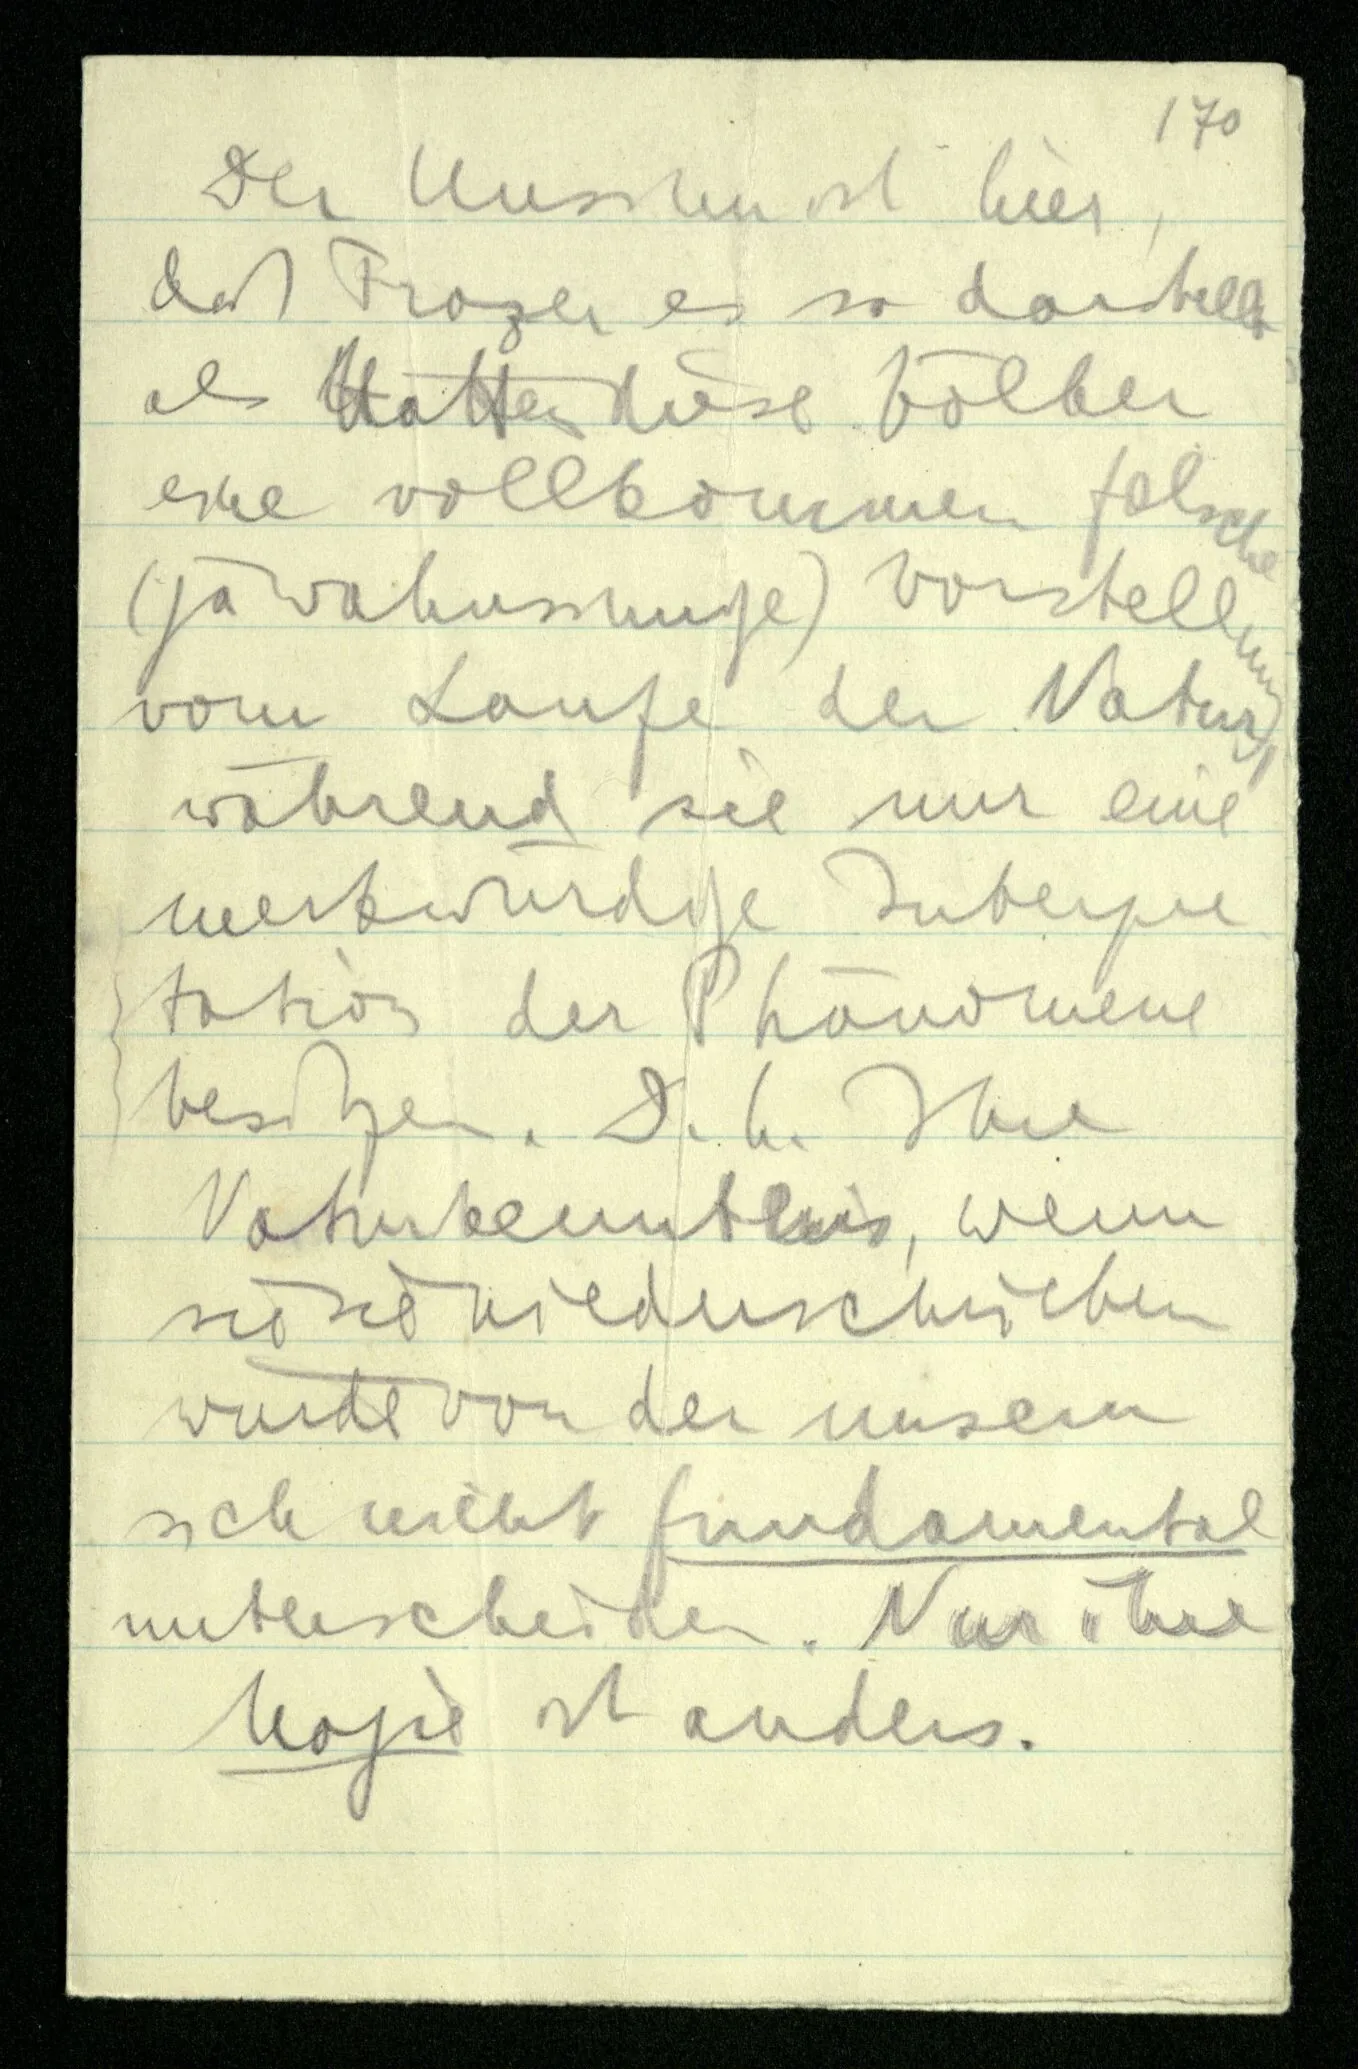 170
Der Unsinn ist hier,
daß Frazer es so darstellt
als hätten diese Völker
eine vollkommen falsche
(ja wahnsinnige) Vorstellung
vom Laufe der Natur,
während sie nur eine
merkwürdige Interpre
tation der Phänomene
besitzen. D. h. Ihre
Naturkenntnis, wenn
sie sie niederschrieben
würde von der unsern
sich nicht fundamental
unterscheiden. Nur ihre
Magie ist anders.